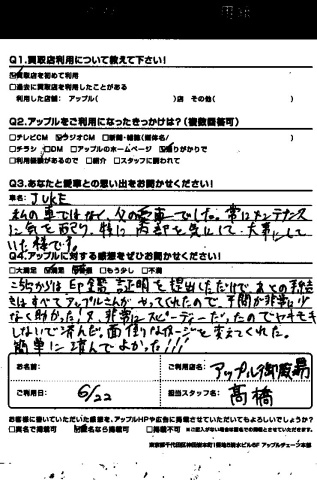 Q1.買取店利用について教えて下さい!
☑買取店を初めて利用
□過去に買取店を利用したことがある
利用した店舗: アップル( )店 その他( )
Q2.アップルをご利用になったきっかけは?(複数回答可)
□テレビCM ☑ラジオCM □新聞・雑誌(媒体名/ )
□チラシ □DM □アップルのホームページ ☑通りがかりで
□利用経験があるので □紹介 □スタッフに聞われて
Q3.あなたと愛車との思い出をお聞かせください!
車名: JUKE
私の車ではなく、父の愛車でした。常にメンテナンス
に気を配り、特に内部を気にして、大事にして
いた様です。
Q4.アップルに対する感想をぜひお聞かせください!
□大満足 ☑満足 □普通 □もう少し □不満
こちらからは 印鑑証明を提出しただけで、あとの手続
きはすべてアップルさんがやってくれたので、手間が非常に少
なく助かった!又、非常にスピーディーだったのでヤキモキ
しないで済んだ。面倒なイメージを変えてくれた。
簡単に済んでよかった!!!
お名前: ご利用店名: アップル御殿場
ご利用日: 6/22 担当スタッフ名: 高橋
お客様に書いていただいた感想を、アップルHPや広告に掲載させていただいてもよろしいでしょうか?
□実名で掲載可 ☑仮名なら掲載可 □掲載不可 ※ご記入がない場合は仮名での掲載とさせていただきます。
東京都千代田区神田錦本町1番地8清水ビル6F アップルチェーン本部